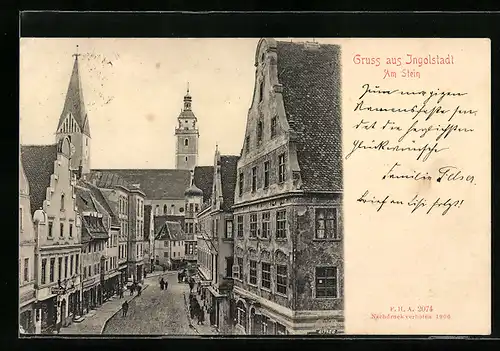 Gruss aus Ingolstadt
Am Stein
Zum morgigen
Namensfeste sen-
det die herzlichsten
Glückwünsche
Familie Felser
Brief an Lise folgt!
F. H. A. 2074
Nachdruck verboten 1906